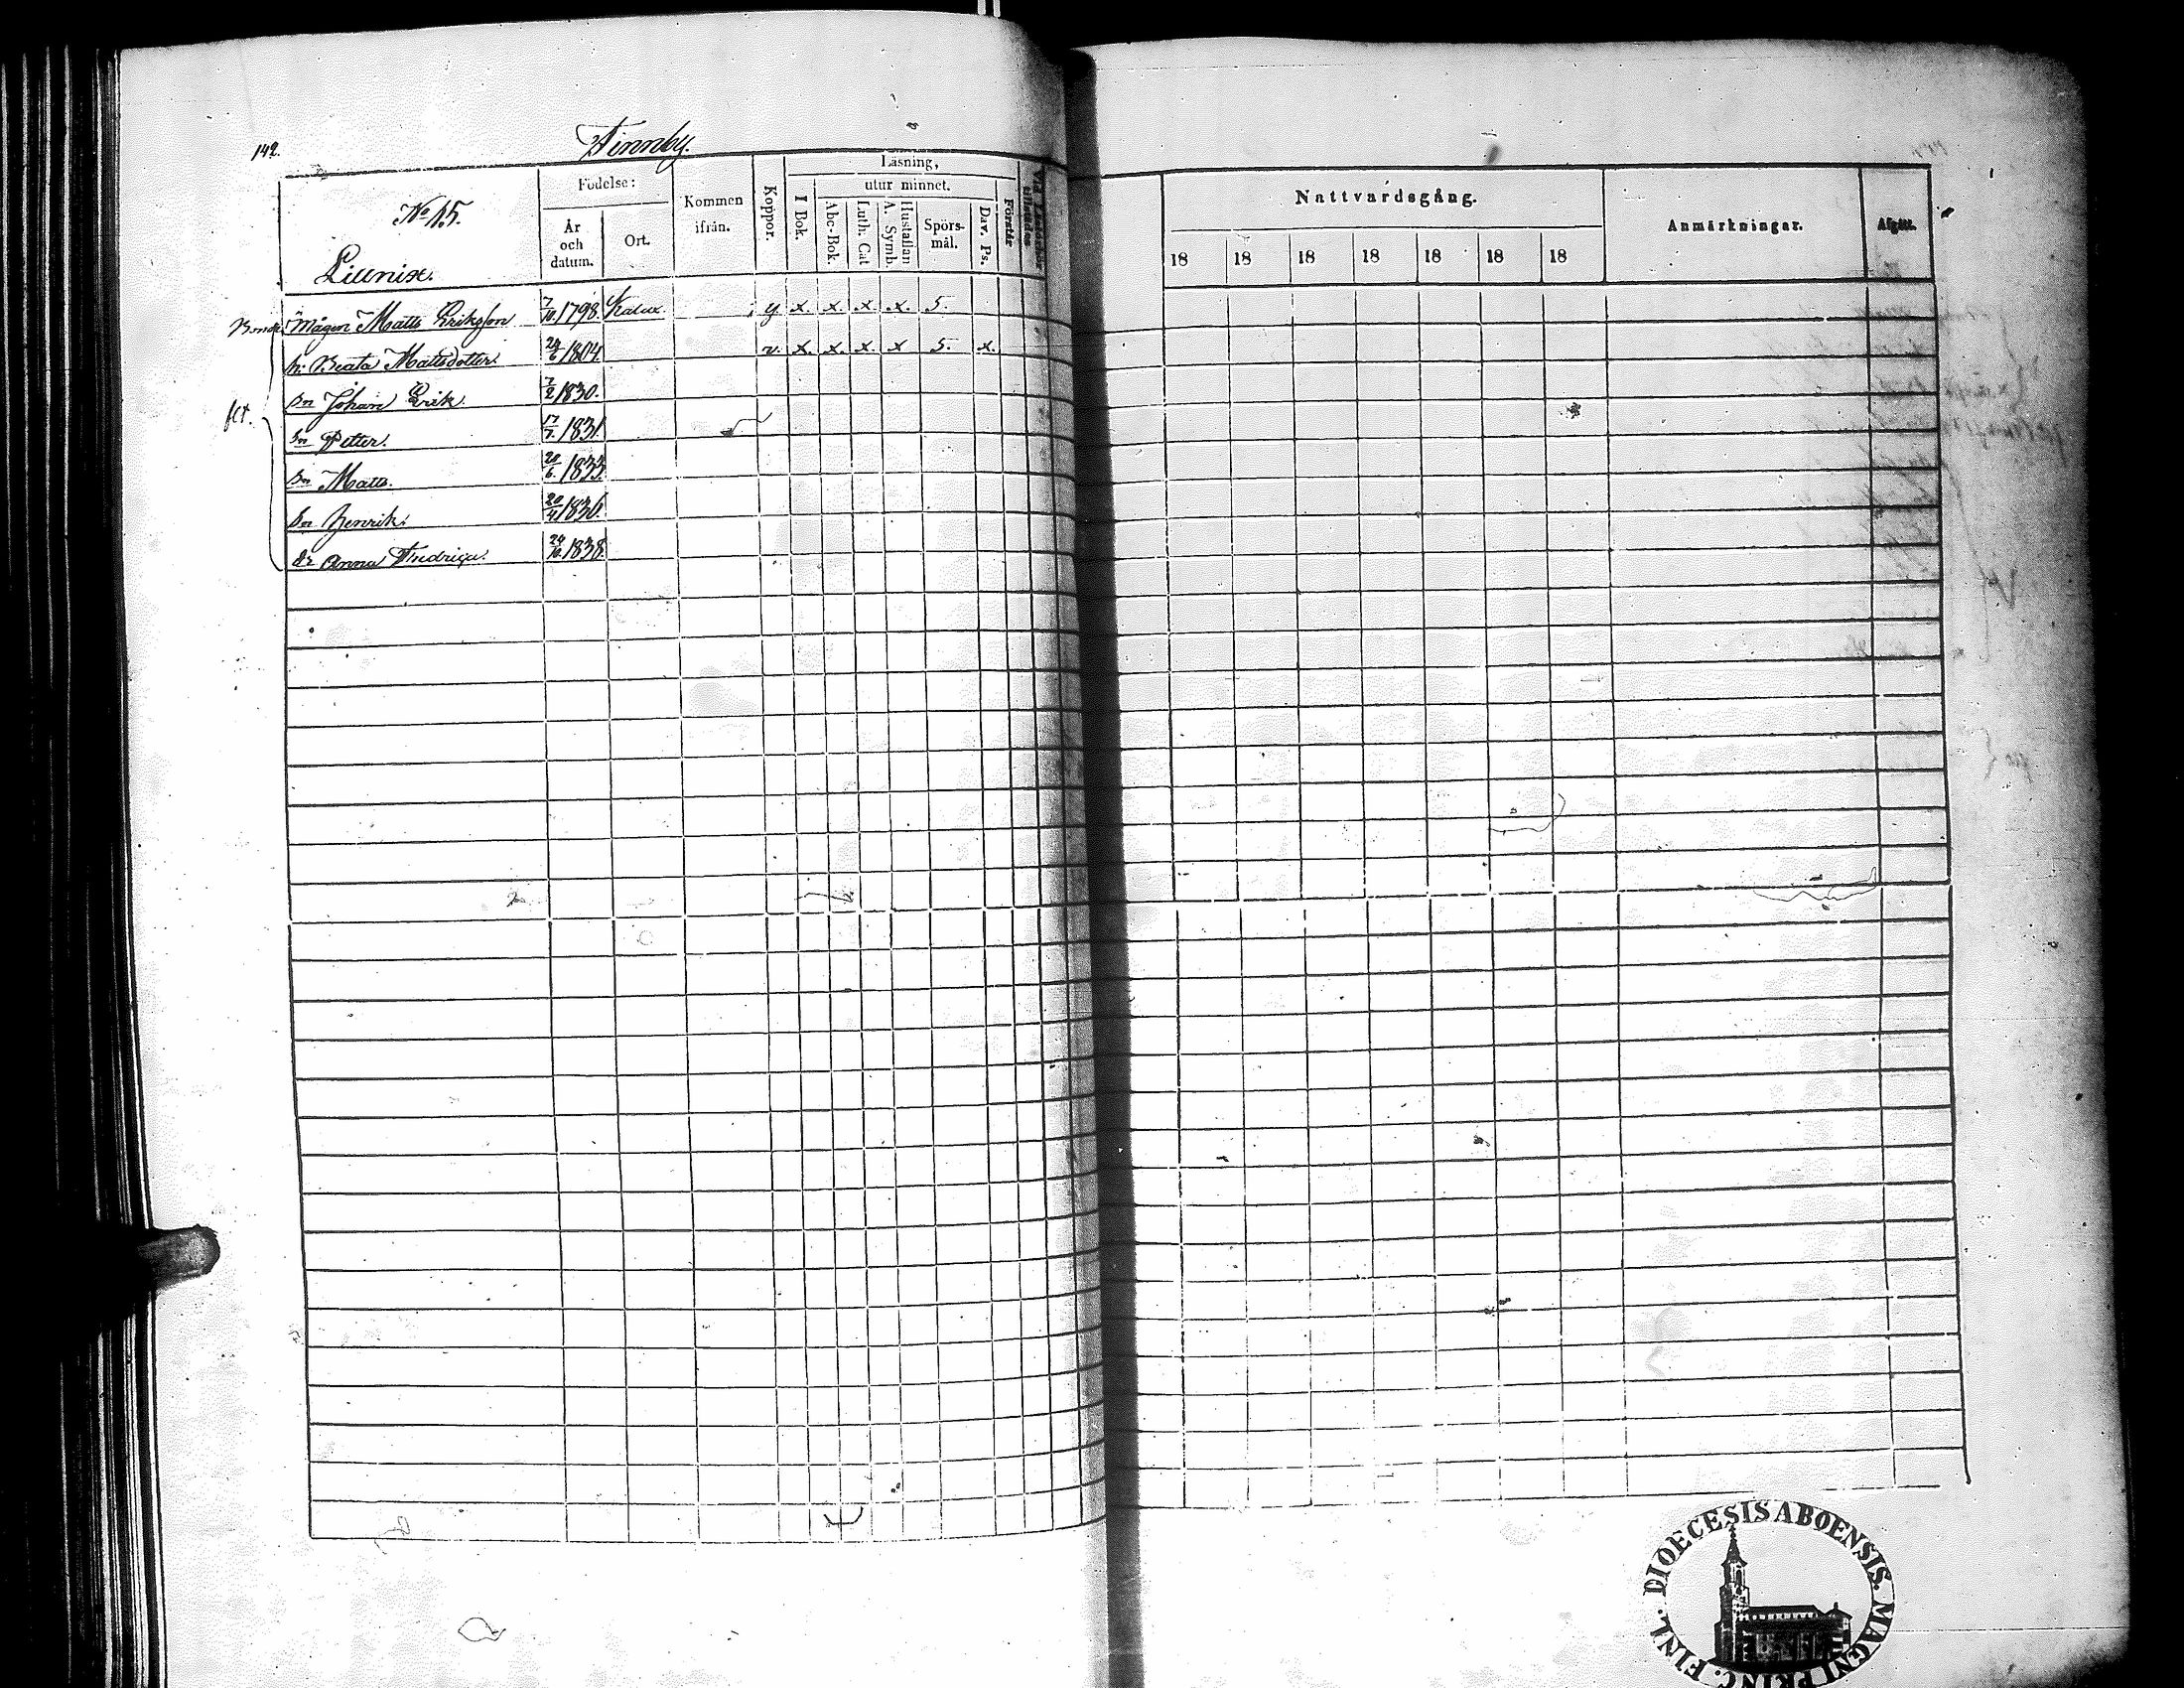 142.
Finnby.
No 15.
Liunix.
Födelse:
År och datum.
Ort.
Kommen ifrån.
Koppor.
Läsning,
I Bok.
utur minnet.
Abc-Bok.
Luth. Cat
A. Symb.
Hustaflan
Spörs-mål.
Dav. Ps.
Förstår
Nattvardsgång.
18 18 18 18 18 18 18
Anmärkningar.
Afgått.
Mågen Matts Eriksson 7/10 1798. x. x. x. x. 5.
h: Beata Mattsdotter. 24/6 1804. v. x. x. x. x 5. x.
sn Johan Erik. 7/2 1830.
fct.
sn Petter. 17/7 1831.
sn Matts. 20/6 1833.
sn Henrik. 20/4 1836.
dr Anna Fredrica. 24/10 1838.
DIOECESIS ABOENSIS. MAGNI PRINC. FINL.